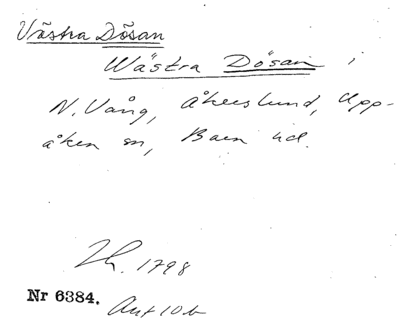 Västra Dösan
Wästra Dösan i
N. Vång, Åkerslund, Upp-
åkra sn, Bara hd.
Lh. 1798
Nr 6384.
Akt 10 b